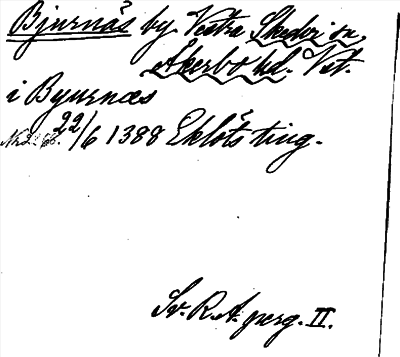 Bjurnäs by. Vestra Skedvi sn,
Åkerbo hd. Vst.
i Byurnæs
22/6 1388 Eklöts ting.
Sv. R. A. perg. II.